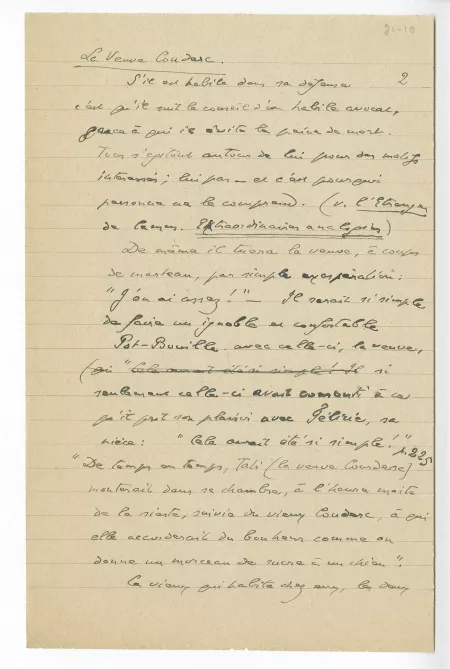 21-10
La Veuve Couderc.
2
S'il est habile dans sa défense
c'est qu'il suit le conseil d'un habile avocat,
grâce à qui il évite la peine de mort.
Tous s'agitent autour de lui pour des motifs
intéressés ; lui pas — et c'est pourquoi
personne ne le comprend. (v. l'Etranger
de Camus. Extraordinaires analogies)
De même il tuera la veuve, à coups
de marteau, par simple exaspération :
"J'en ai assez !" — Il serait si simple
de faire un ignoble et confortable
Pot-Bouille avec celle-ci, la veuve,
(qui "Cela aurait été si simple ! Il si
seulement celle-ci avait consenti à ce
qu'il prît son plaisir avec Félicie, sa
nièce : "Cela aurait été si simple !" p.225
"De temps en temps, Tati (la veuve Couderc)
monterait dans sa chambre, à l'heure moite
de la sieste, suivie du vieux Couderc, à qui
elle accorderait du bonheur comme on
donne un morceau de sucre à un chien".
Ce vieux qui habite chez eux, les deux